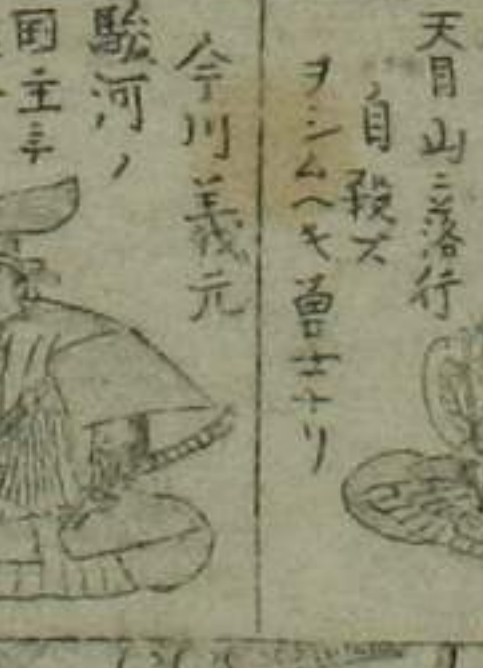 天目山ニ落行
自殺ス
ヲシムヘキ勇士ナリ
今川義元
駿河ノ
国主